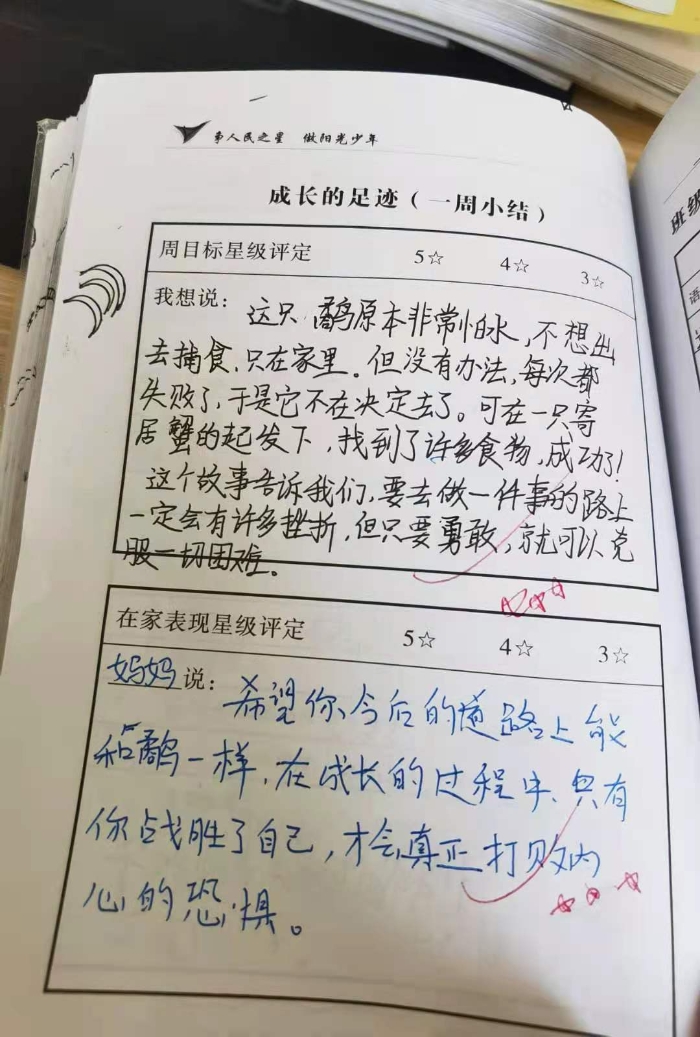 争人民之星 做阳光少年
成长的足迹（一周小结）
周目标星级评定 5☆ 4☆ 3☆
我想说：这只鹬原本非常怕水，不想出
去捕食，只在家里。但没有办法，每次都
失败了，于是它不在决定去了。可在一只寄
居蟹的起发下，找到了许多食物，成功了！
这个故事告诉我们，要去做一件事的路上
一定会有许多挫折，但只要勇敢，就可以克
服一切困难。
在家表现星级评定 5☆ 4☆ 3☆
妈妈说：希望你今后的道路上能
和鹬一样，在成长的过程中、只有
你战胜了自己，才会真正打败内
心的恐惧。
班级
语